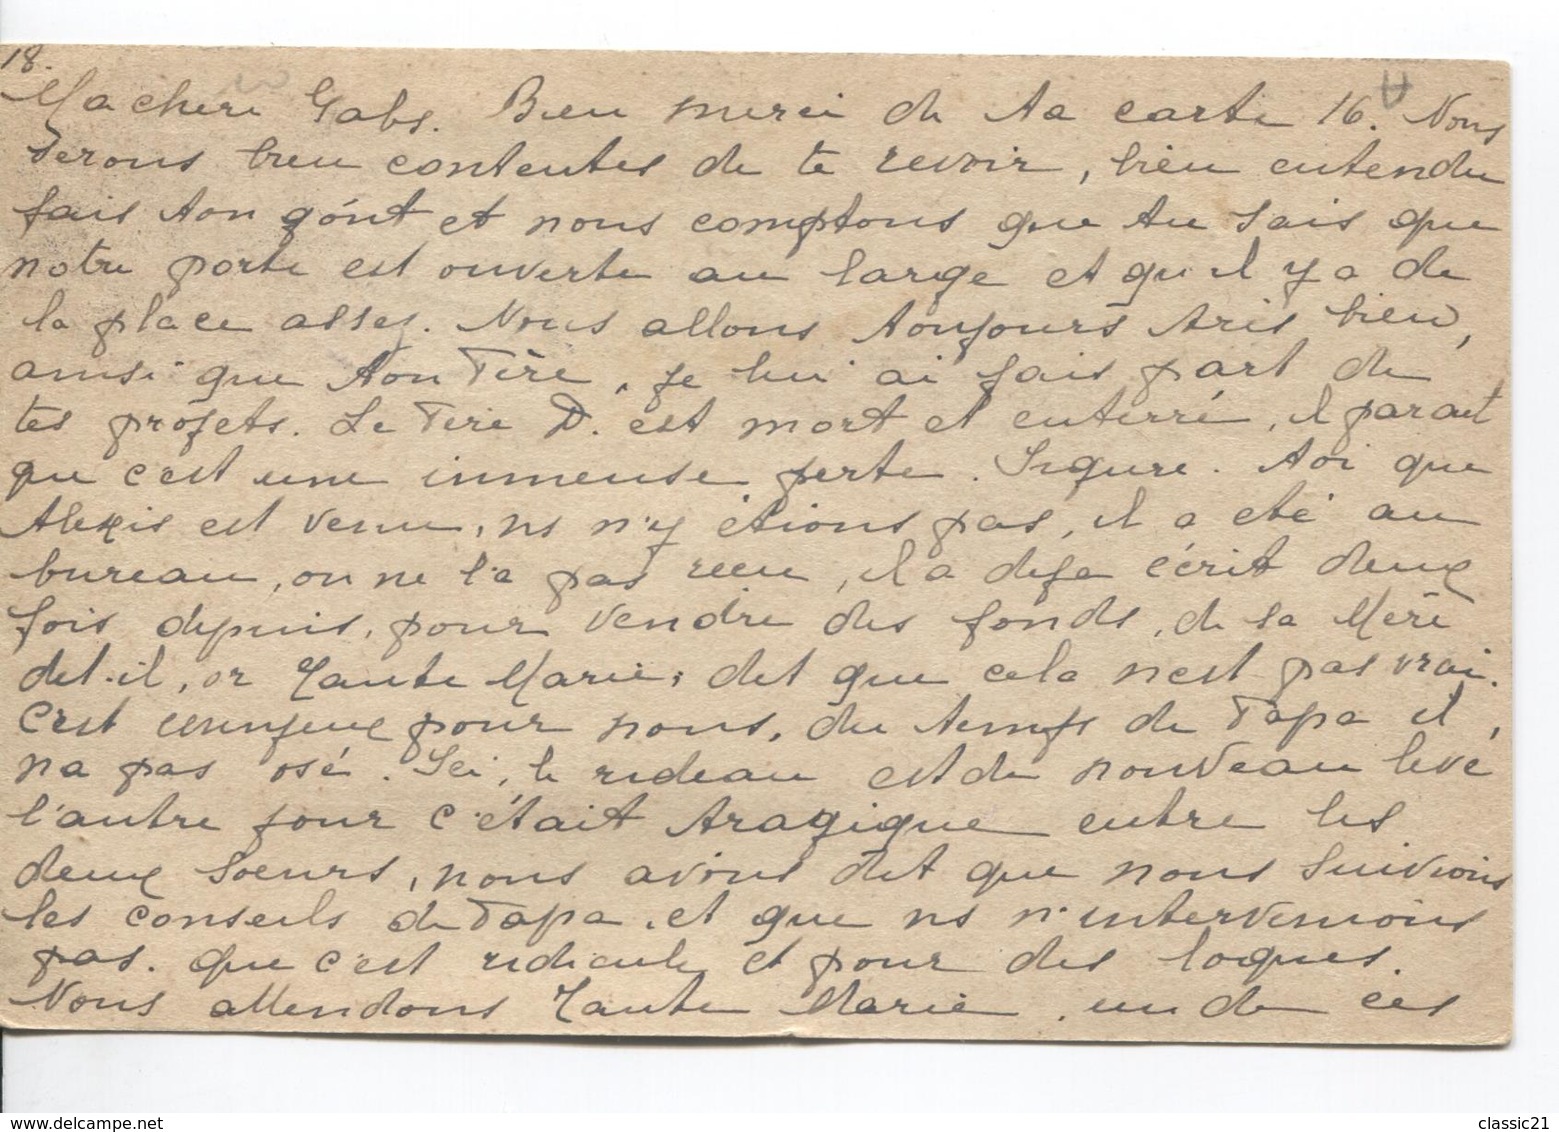 18.
Ma chere Gabs. Bien merci de ta carte 16. Nous
serons bien contentes de te revoir, bien entendu
fais ton goût et nous comptons que tu sais que
notre porte est ouverte au large et qu'il y a de
la place assez. Nous allons toujours très bien,
ainsi que ton Père, je lui ai fais part de
tes projets. Le Père D. est mort et enterré, il parait
que c'est une immense perte. Figure toi que
Alexis est venu, ns n'y étions pas, il a été au
bureau, on ne l'a pas recu, il a deja écrit deux
fois depuis, pour vendre des fonds, de sa Mère
dit-il, or Tante Marie, dit que cela n'est pas vrai.
C'est ennuyeux pour nous, du temps de Papa il,
n'a pas osé. Ici, le rideau est de nouveau levé
l'autre jour c'était tragique entre les
deux soeurs, nous avons dit que nous suivions
les conseils de Papa, et que ns n'intervenions
pas. que c'est ridicule et pour des loques.
Nous attendons Tante Marie, un de ces
classic21